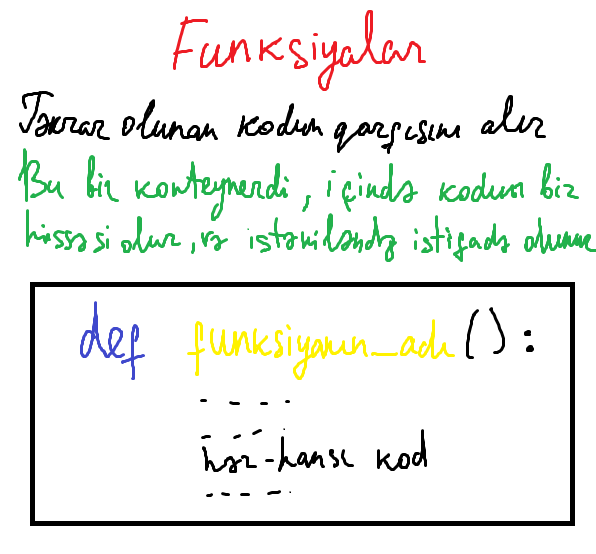 Funksiyalar
Təkrar olunan kodun qarşısını alır
Bu bir konteynerdi, içində kodun bir
hissəsi olur, və istəniləndə istifadə olunur
def funksiyanın_adı():
- - - -
- - - -
hər-hansı kod
- - - -